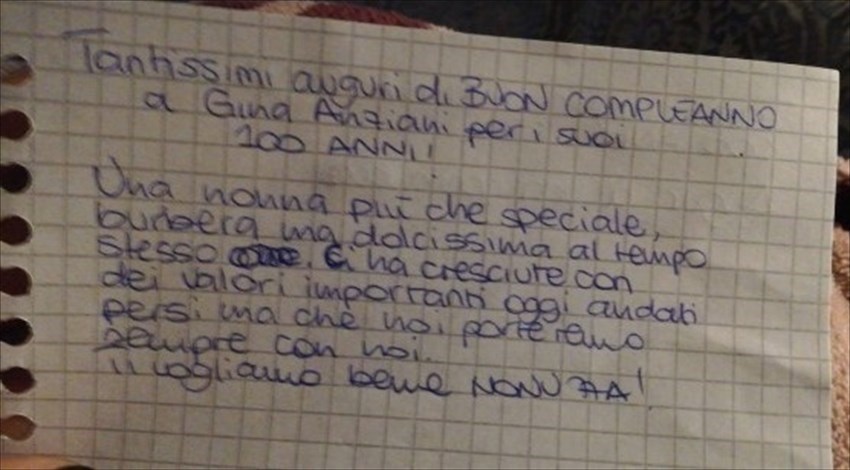 Tantissimi auguri di BUON COMPLEANNO
a Gina Anziani per i suoi
100 ANNI!
Una nonna più che speciale,
burbera ma dolcissima al tempo
stesso. Ci ha cresciute con
dei valori importanti oggi andati
persi ma che noi porteremo
sempre con noi.
Ti vogliamo bene